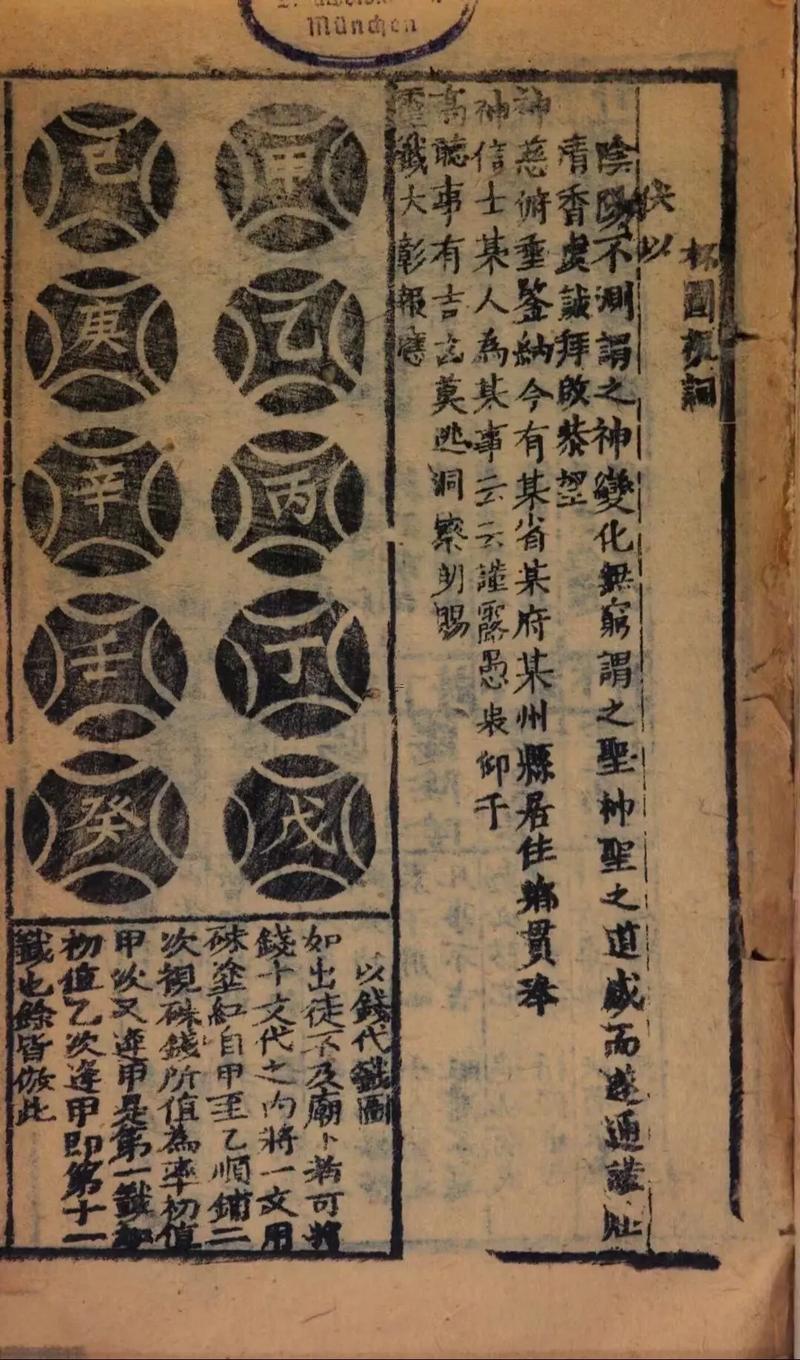 München
杯圖祝詞
伏以
陰陽不測謂之神變化無窮謂之聖神聖之道感而遂通謹
清香虔誠拜啟恭望
神慈俯垂鑒納今有某省某府某州縣居住鄉貫奉
神信士某人為某事云云謹露愚衷仰干
高聽事有吉凶莫逃洞察明賜
靈籤大彰報應
甲
乙
丙
丁
戊
己
庚
辛
壬
癸
以錢代籤圖
如出徒不及廟卜者可將
錢十文代之內將一文用
硃塗紅自甲至乙順鋪二
次視硃錢所值為率初值
甲次又逢甲是第一籤如
初值乙次逢甲即第十一
籤也餘皆倣此